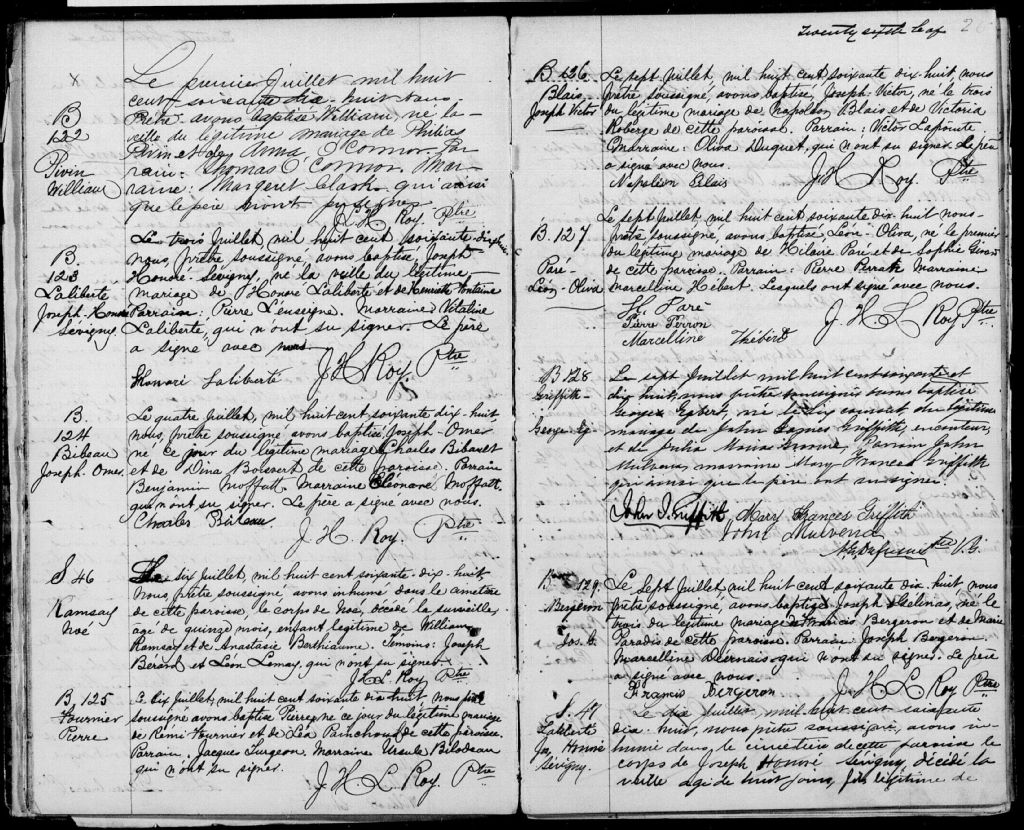 X
B
122
Pivin
William
Le premier Juillet mil huit
cent soixante dix-huit nous
Prêtre avons baptisé William, né la
veille du légitime mariage de Philias
Pivin et de Anna O'Connor. Par
rain: Thomas O'Connor. Mar-
raine: Margeret Clark qui ainsi
que le père n'ont pu signer.
J H Roy Ptre
B.
123
Laliberté
Joseph-Honoré
Sévigny.
Le trois Juillet, mil huit cent soixante-dix-huit,
nous, prêtre soussigné, avons baptisé, Joseph
Honoré-Sévigny, né la veille du légitime
mariage de Honoré Laliberté et de Henriette Fontaine
Parrain: Pierre L'enseigne. Marraine Vitaline
Laliberté, qui n'ont su signer. Le père
a signé avec nous.
Honoré Laliberté J H Roy. Ptre
B.
124
Bibeau
Joseph-Omer.
Le quatre Juillet, mil huit cent soixante dix-huit,
nous, prêtre soussigné avons baptisé Joseph-Omer
né ce jour du légitime mariage Charles Bibeau et
et de Dina Boisvert de cette paroisse. Parrain
Benjamin Moffatt. Marraine Éléonore Moffatt.
qui n'ont su signer. Le père a signé avec nous.
Charles Bibeau.
J. H Roy. Ptre
S 46
Ramsay
Noé
Le six Juillet, mil huit cent soixante-dix-huit,
Nous, Prêtre soussigné, avons inhumé dans le cimetière
de cette paroisse, le corps de Noé, décédé la surveille,
agé de quinze mois, enfant légitime de William
Ramsay et de Anastasie Berthiaume. Témoins: Joseph
Bérard et Léon Lemay, qui n'ont su signer.
J H L Roy Ptre
B 125
Fournier
Pierre
Le six Juillet, mil huit cent soixante-dix-huit nous prêtre
soussigné avons baptisé Pierre, né ce jour du légitime mariage
de Rémi Fournier et de Léa Painchaud de cette paroisse.
Parrain, Jacques Turgeon. Marraine Ursule Bilodeau
qui n'ont su signer.
J. H L Roy. Ptre
Twenty sixth leaf 26
B. 126
Blais
Joseph Victor
Le sept Juillet, mil huit cent soixante dix-huit, nous
Prêtre soussigné, avons baptisé, Joseph-Victor, né le trois
du légitime mariage de Napoléon Blais et de Victoria
Roberge de cette paroisse. Parrain: Victor Lapointe
Marraine: Oliva Duquet, qui n'ont su signer. Le père
a signé avec nous.
Napoléon Blais J H Roy. Ptre
B. 127
Paré-
Léon-Oliva
Le sept Juillet, mil huit cent soixante dix-huit nous-
Prêtre soussigné, avons baptisé, Léon-Oliva, né le premier
du légitime mariage de Hilaire Paré et de Sophie
de cette paroisse. Parrain: Pierre Marraine
Marcelline Hébert. Lesquels ont signé avec nous.
H. Paré
Pierre Perron
Marcelline Hébert J. H L Roy Ptre
B 128
Griffith
George Eg
Le sept Juillet mil huit cent soixante et
dix huit, nous prêtre soussigné avons baptisé
George Egbert, né le dix courant du légitime
mariage de John James Griffith, encanteur,
et de Julia Maria Parrain John
Mulvena, marraine Mary Frances Griffith
qui ainsi que le père ont signé.
John J. Griffith Mary Frances Griffith
John Mulvena
Ptre V.G.
B. 129.
Bergeron
Jos. G.
Le Sept Juillet, mil huit cent soixante dix-huit nous
Prêtre soussigné, avons baptisé Joseph Gélinas, né le
trois du légitime mariage de Francis Bergeron et de Marie
Paradis de cette paroisse. Parrain: Joseph Bergeron.
Marcelline Desrnais qui n'ont su signer. Le père
a signé avec nous.
Francis Bergeron J. H L Roy Ptre
S. 47
Laliberté
Jos. Honoré
Sévigny.
Le dix Juillet mil huit cent soixante
dix-huit, nous, prêtre soussigné, avons in-
humé dans le cimetière de cette paroisse le
corps de Joseph Honoré Sévigny, décédé la
veille agé de huit jours, fils légitime de